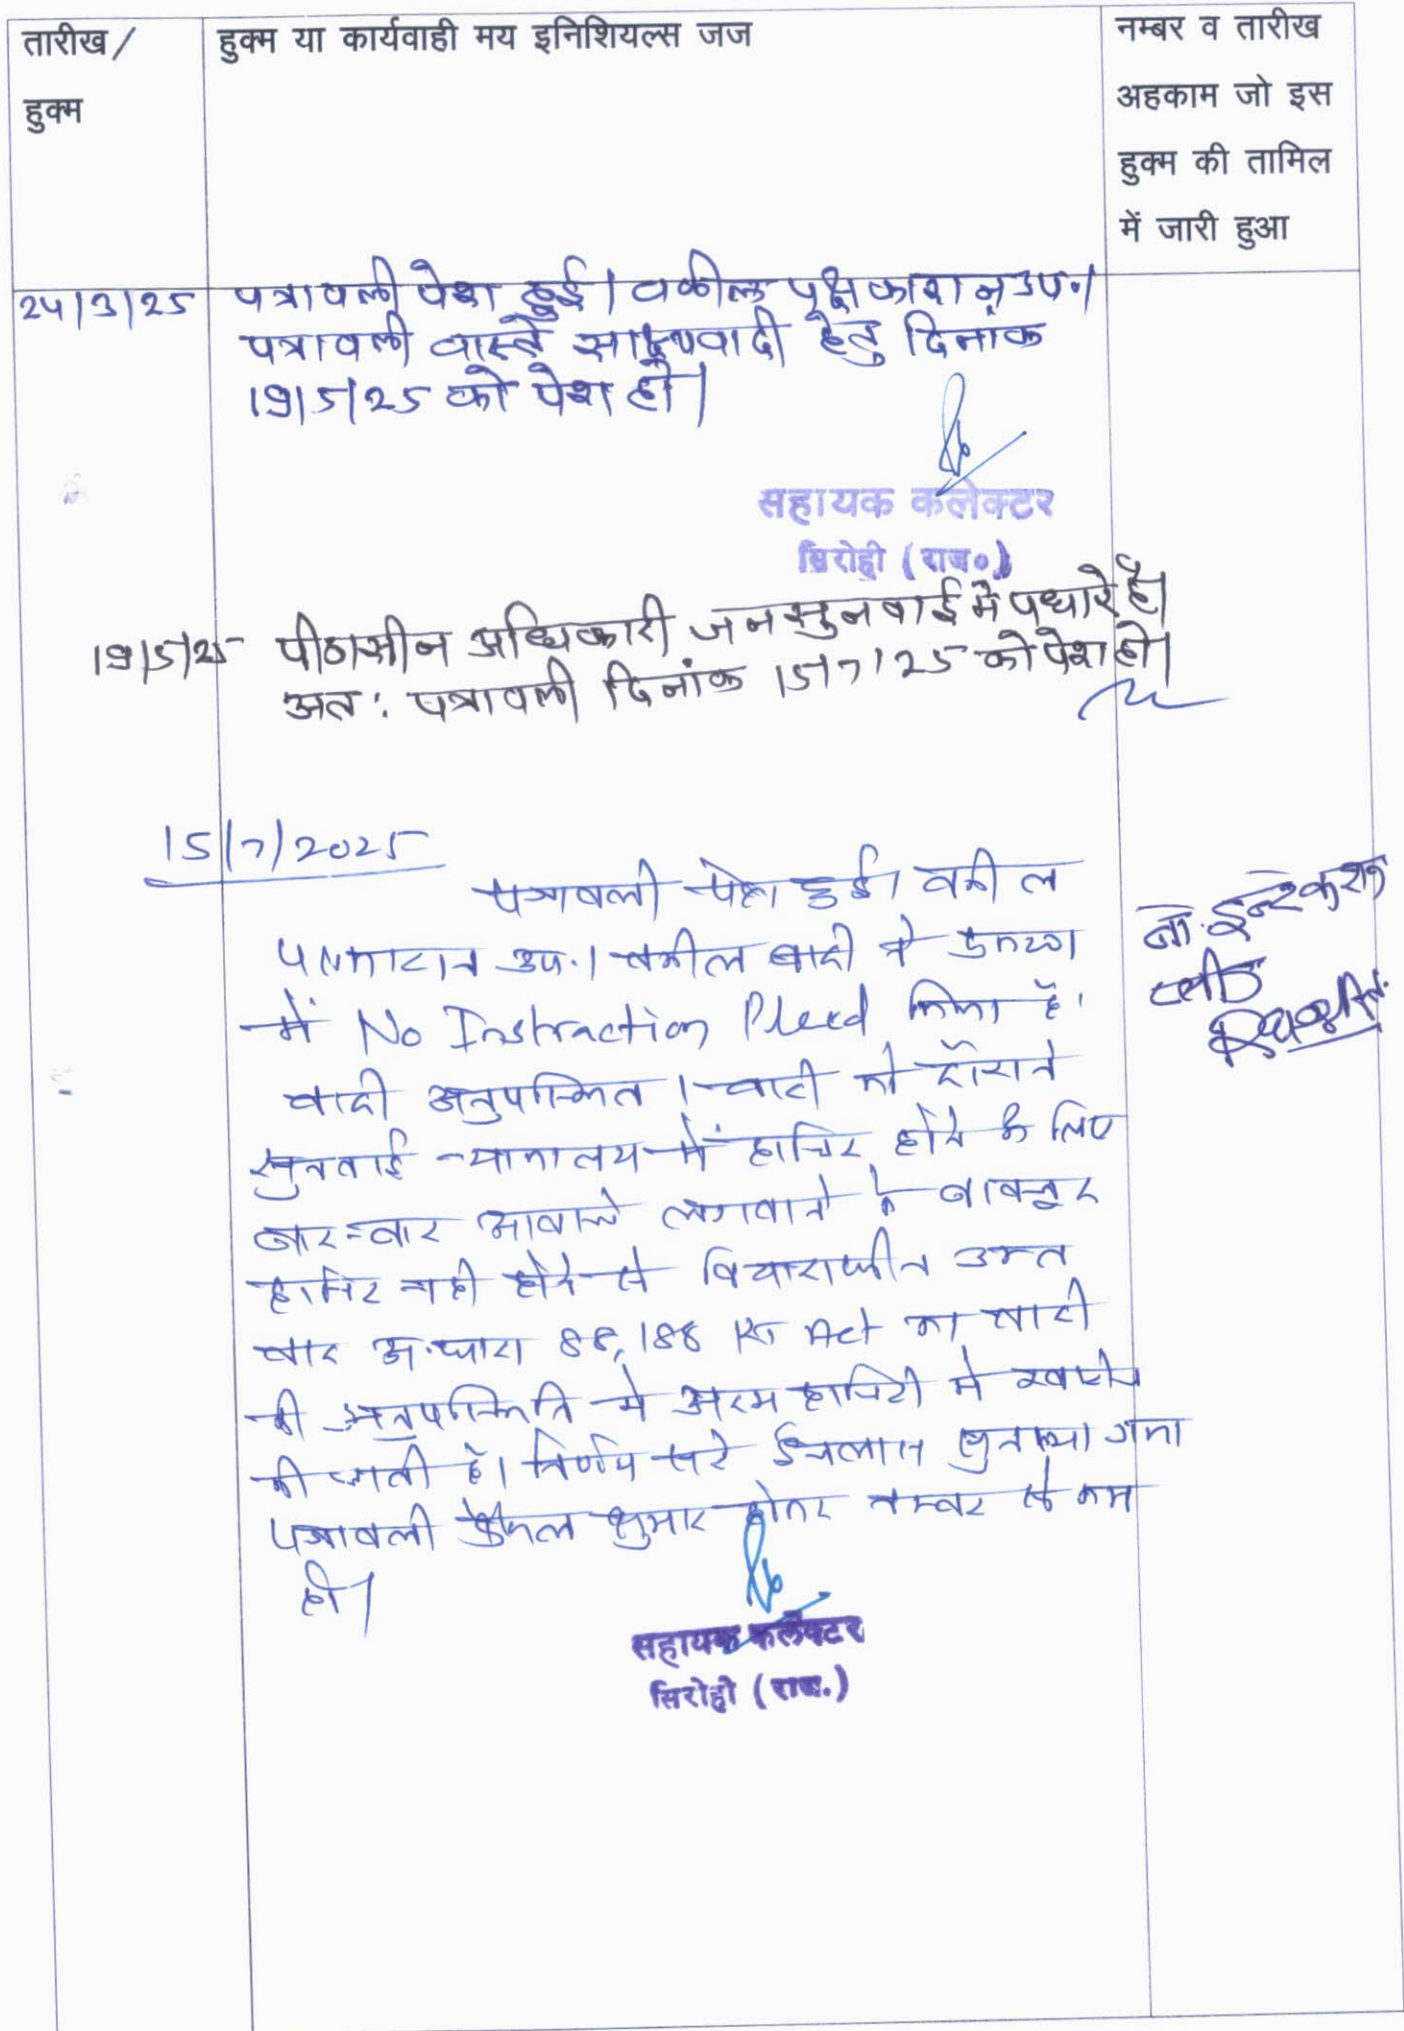 तारीख/
हुक्म
हुक्म या कार्यवाही मय इनिशियल्स जज
नम्बर व तारीख
अहकाम जो इस
हुक्म की तामिल
में जारी हुआ
24/3/25 पत्रावली पेश हुई। वकील पक्षकारान उप.।
पत्रावली वास्ते साक्ष्यवादी हेतु दिनांक
19/5/25 को पेश हो।
सहायक कलेक्टर
सिरोही (राज०)
19/5/25 पीठासीन अधिकारी जनसुनवाई में पधारे है।
अत: पत्रावली दिनांक 15/7/25 को पेश हो।
15/7/2025
पत्रावली पेश हुई। वकील
पक्षकारान उप.। वकील वादी ने
में No Instraction Pleed किया है।
वादी अनुपस्थित। वादी को दौराने
सुनवाई न्यायालय में हाजिर होने के लिए
बार-बार आवाजे लगवाने के बावजूद
हाजिर नही होने से विचाराधीन उक्त
वाद अ.धारा 88,188 RT Act का वादी
की अनुपस्थिति मे अदम हाजिरी मे खारीज
की जाती है। निर्णय सरे इजलास सुनाया गया
पत्रावली फैसल शुमार होकर नम्बर से कम
हो।
सहायक कलेक्टर
सिरोही (राज.)
नो. इन्स्ट्रक्शन
प्लीड